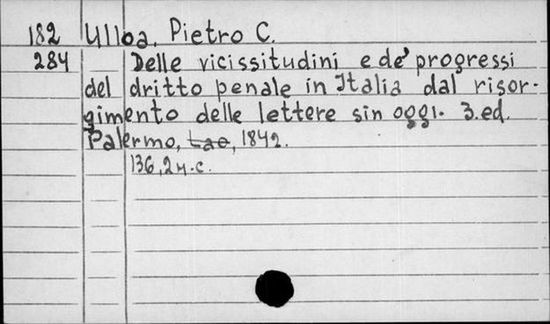 182 Ulloa, Pietro C.
284 Delle vicissitudini e de' progressi
del dritto penale in Italia dal risor-
gimento delle lettere sin oggi. 3.ed.
Palermo, Lao, 1842.
136,2 н.с.